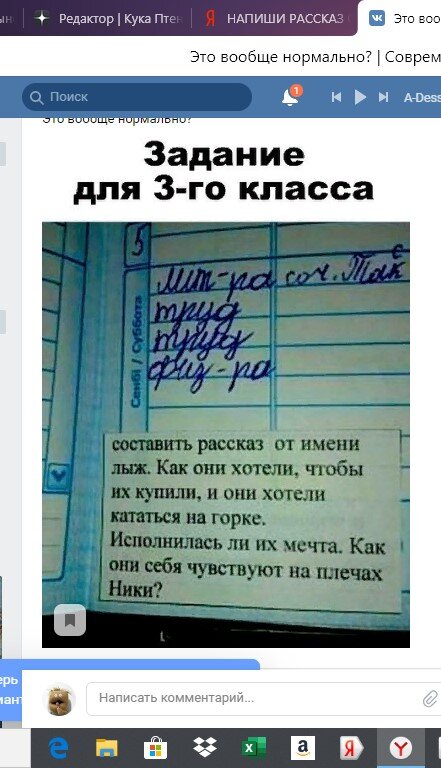 Редактор | Кука Птен
НАПИШИ РАССКАЗ
Это воо
Это вообще нормально? | Соврем
Поиск
1
A-Dess
Это вообще нормально?
Задание
для 3-го класса
5
Сенбі / Суббота
Лит-ра соч. Так
труд
труд
физ-ра
составить рассказ от имени
лыж. Как они хотели, чтобы
их купили, и они хотели
кататься на горке.
Исполнилась ли их мечта. Как
они себя чувствуют на плечах
Ники?
Написать комментарий...